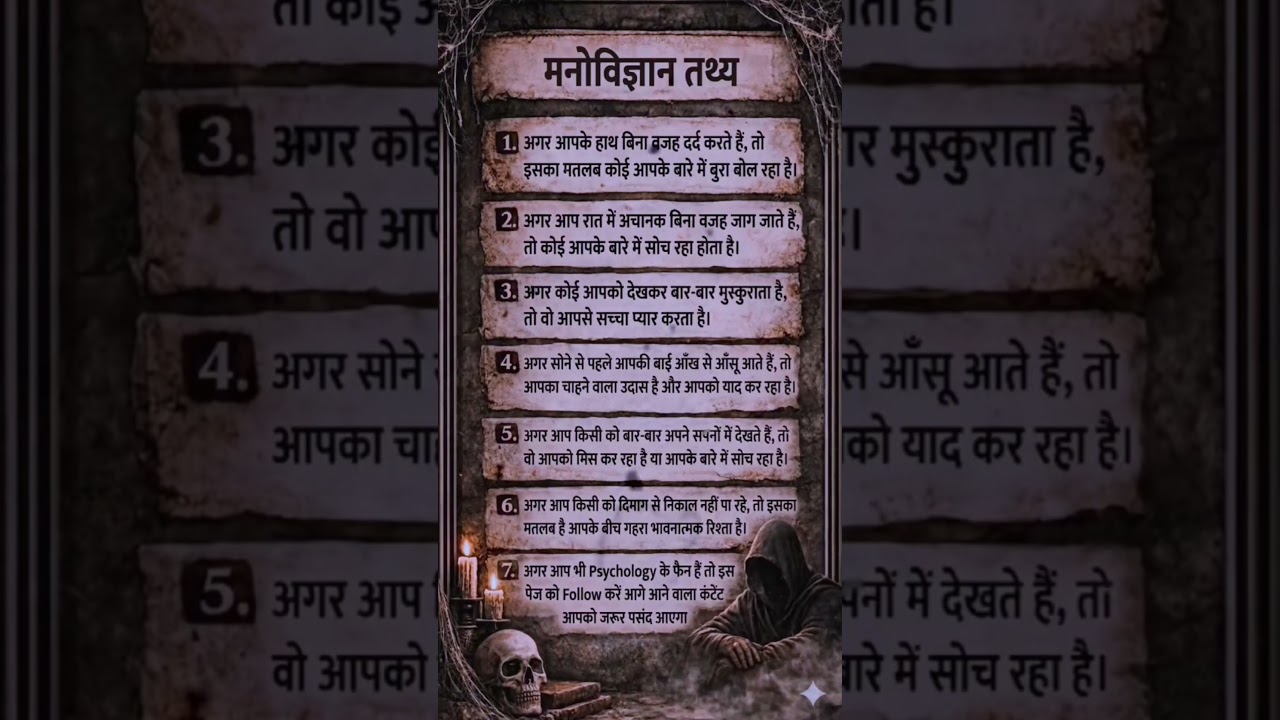 मनोविज्ञान तथ्य
1. अगर आपके हाथ बिना वजह दर्द करते हैं, तो
इसका मतलब कोई आपके बारे में बुरा बोल रहा है।
2. अगर आप रात में अचानक बिना वजह जाग जाते हैं,
तो कोई आपके बारे में सोच रहा होता है।
3. अगर कोई आपको देखकर बार-बार मुस्कुराता है,
तो वो आपसे सच्चा प्यार करता है।
4. अगर सोने से पहले आपकी बाई आँख से आँसू आते हैं, तो
आपका चाहने वाला उदास है और आपको याद कर रहा है।
5. अगर आप किसी को बार-बार अपने सपनों में देखते हैं, तो
वो आपको मिस कर रहा है या आपके बारे में सोच रहा है।
6. अगर आप किसी को दिमाग से निकाल नहीं पा रहे, तो इसका
मतलब है आपके बीच गहरा भावनात्मक रिश्ता है।
7. अगर आप भी Psychology के फैन हैं तो इस
पेज को Follow करें आगे आने वाला कंटेंट
आपको जरूर पसंद आएगा
3. अगर कोई
तो वो आप
4. अगर सोने
आपका चा
5. अगर आप
वो आपको
र मुस्कुराता है,
से आँसू आते हैं, तो
को याद कर रहा है।
नों में देखते हैं, तो
रे में सोच रहा है।